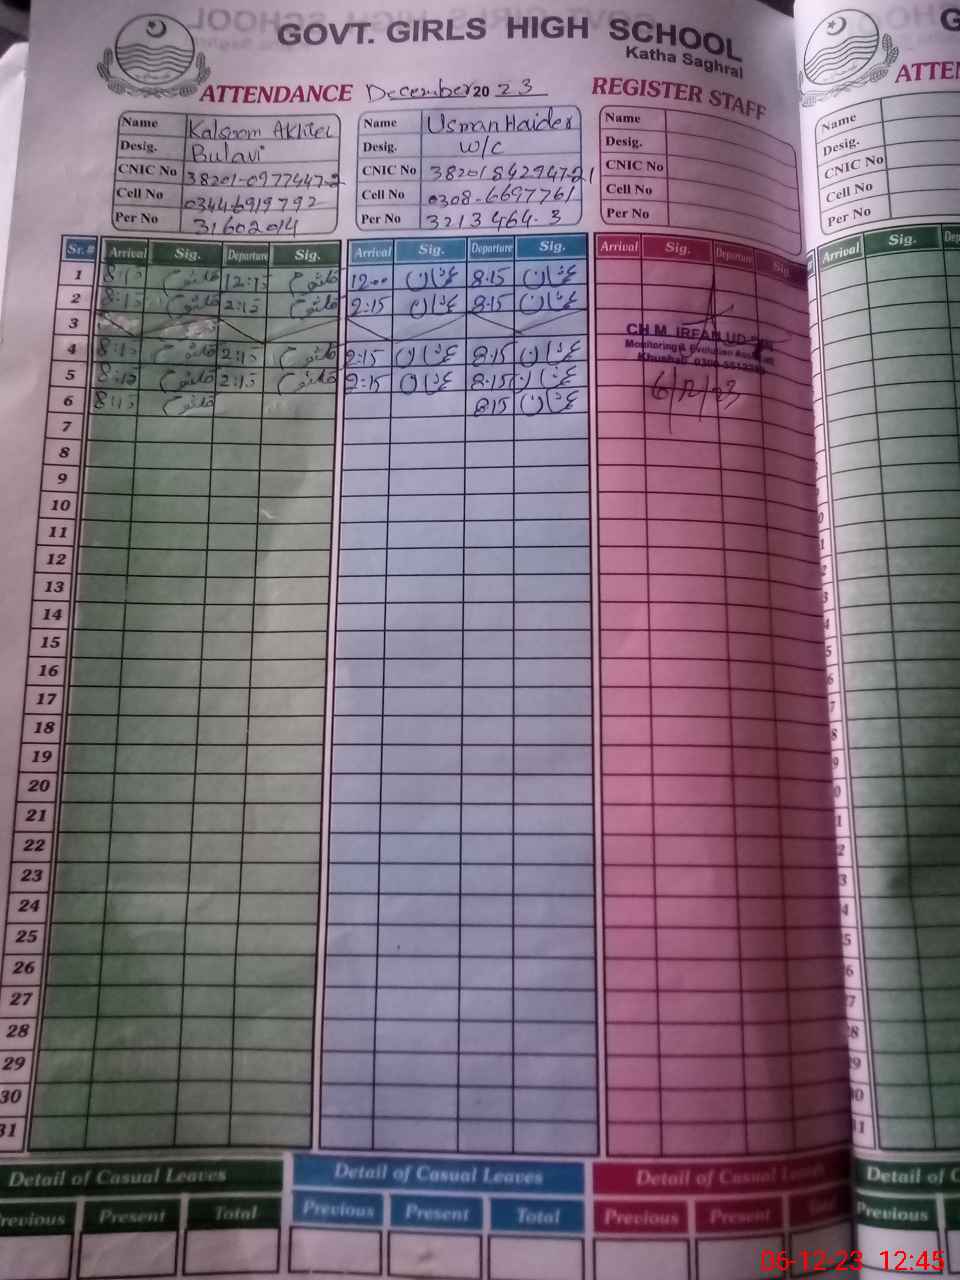 GOVT. GIRLS HIGH SCHOOL
Katha Saghral
ATTENDANCE December 2023 REGISTER STAFF
Name Kalsoom Akhter
Desig. Bulavi
CNIC No 38201-0977447-2
Cell No 03446919792
Per No 31602014
Name Usman Haider
Desig. w/c
CNIC No 3820184294721
Cell No 0308-6697761
Per No 3213464-3
Name
Desig.
CNIC No
Cell No
Per No
Sr. # Arrival Sig. Departure Sig. Arrival Sig. Departure Sig. Arrival Sig. Departure Sig.
1 8:15 12:15 1200 عثمان 8:15 عثمان
2 8:15 2:15 2:15 عثمان 8:15 عثمان
3
4 8:15 2:15 2:15 عثمان 8:15 عثمان
5 8:15 2:15 2:15 عثمان 8:15 عثمان
6 8:15 8:15 عثمان
CH.M. IRFAN UD-DIN
Monitoring & Evolution Assistant
Khushab
6/12/23
7
8
9
10
11
12
13
14
15
16
17
18
19
20
21
22
23
24
25
26
27
28
29
30
31
Detail of Casual Leaves Detail of Casual Leaves Detail of Casual Leaves
Previous Present Total Previous Present Total Previous Present Total
G
ATTEN
Name
Desig.
CNIC No
Cell No
Per No
Arrival Sig. Dep
Detail of C
Previous
06-12-23 12:45